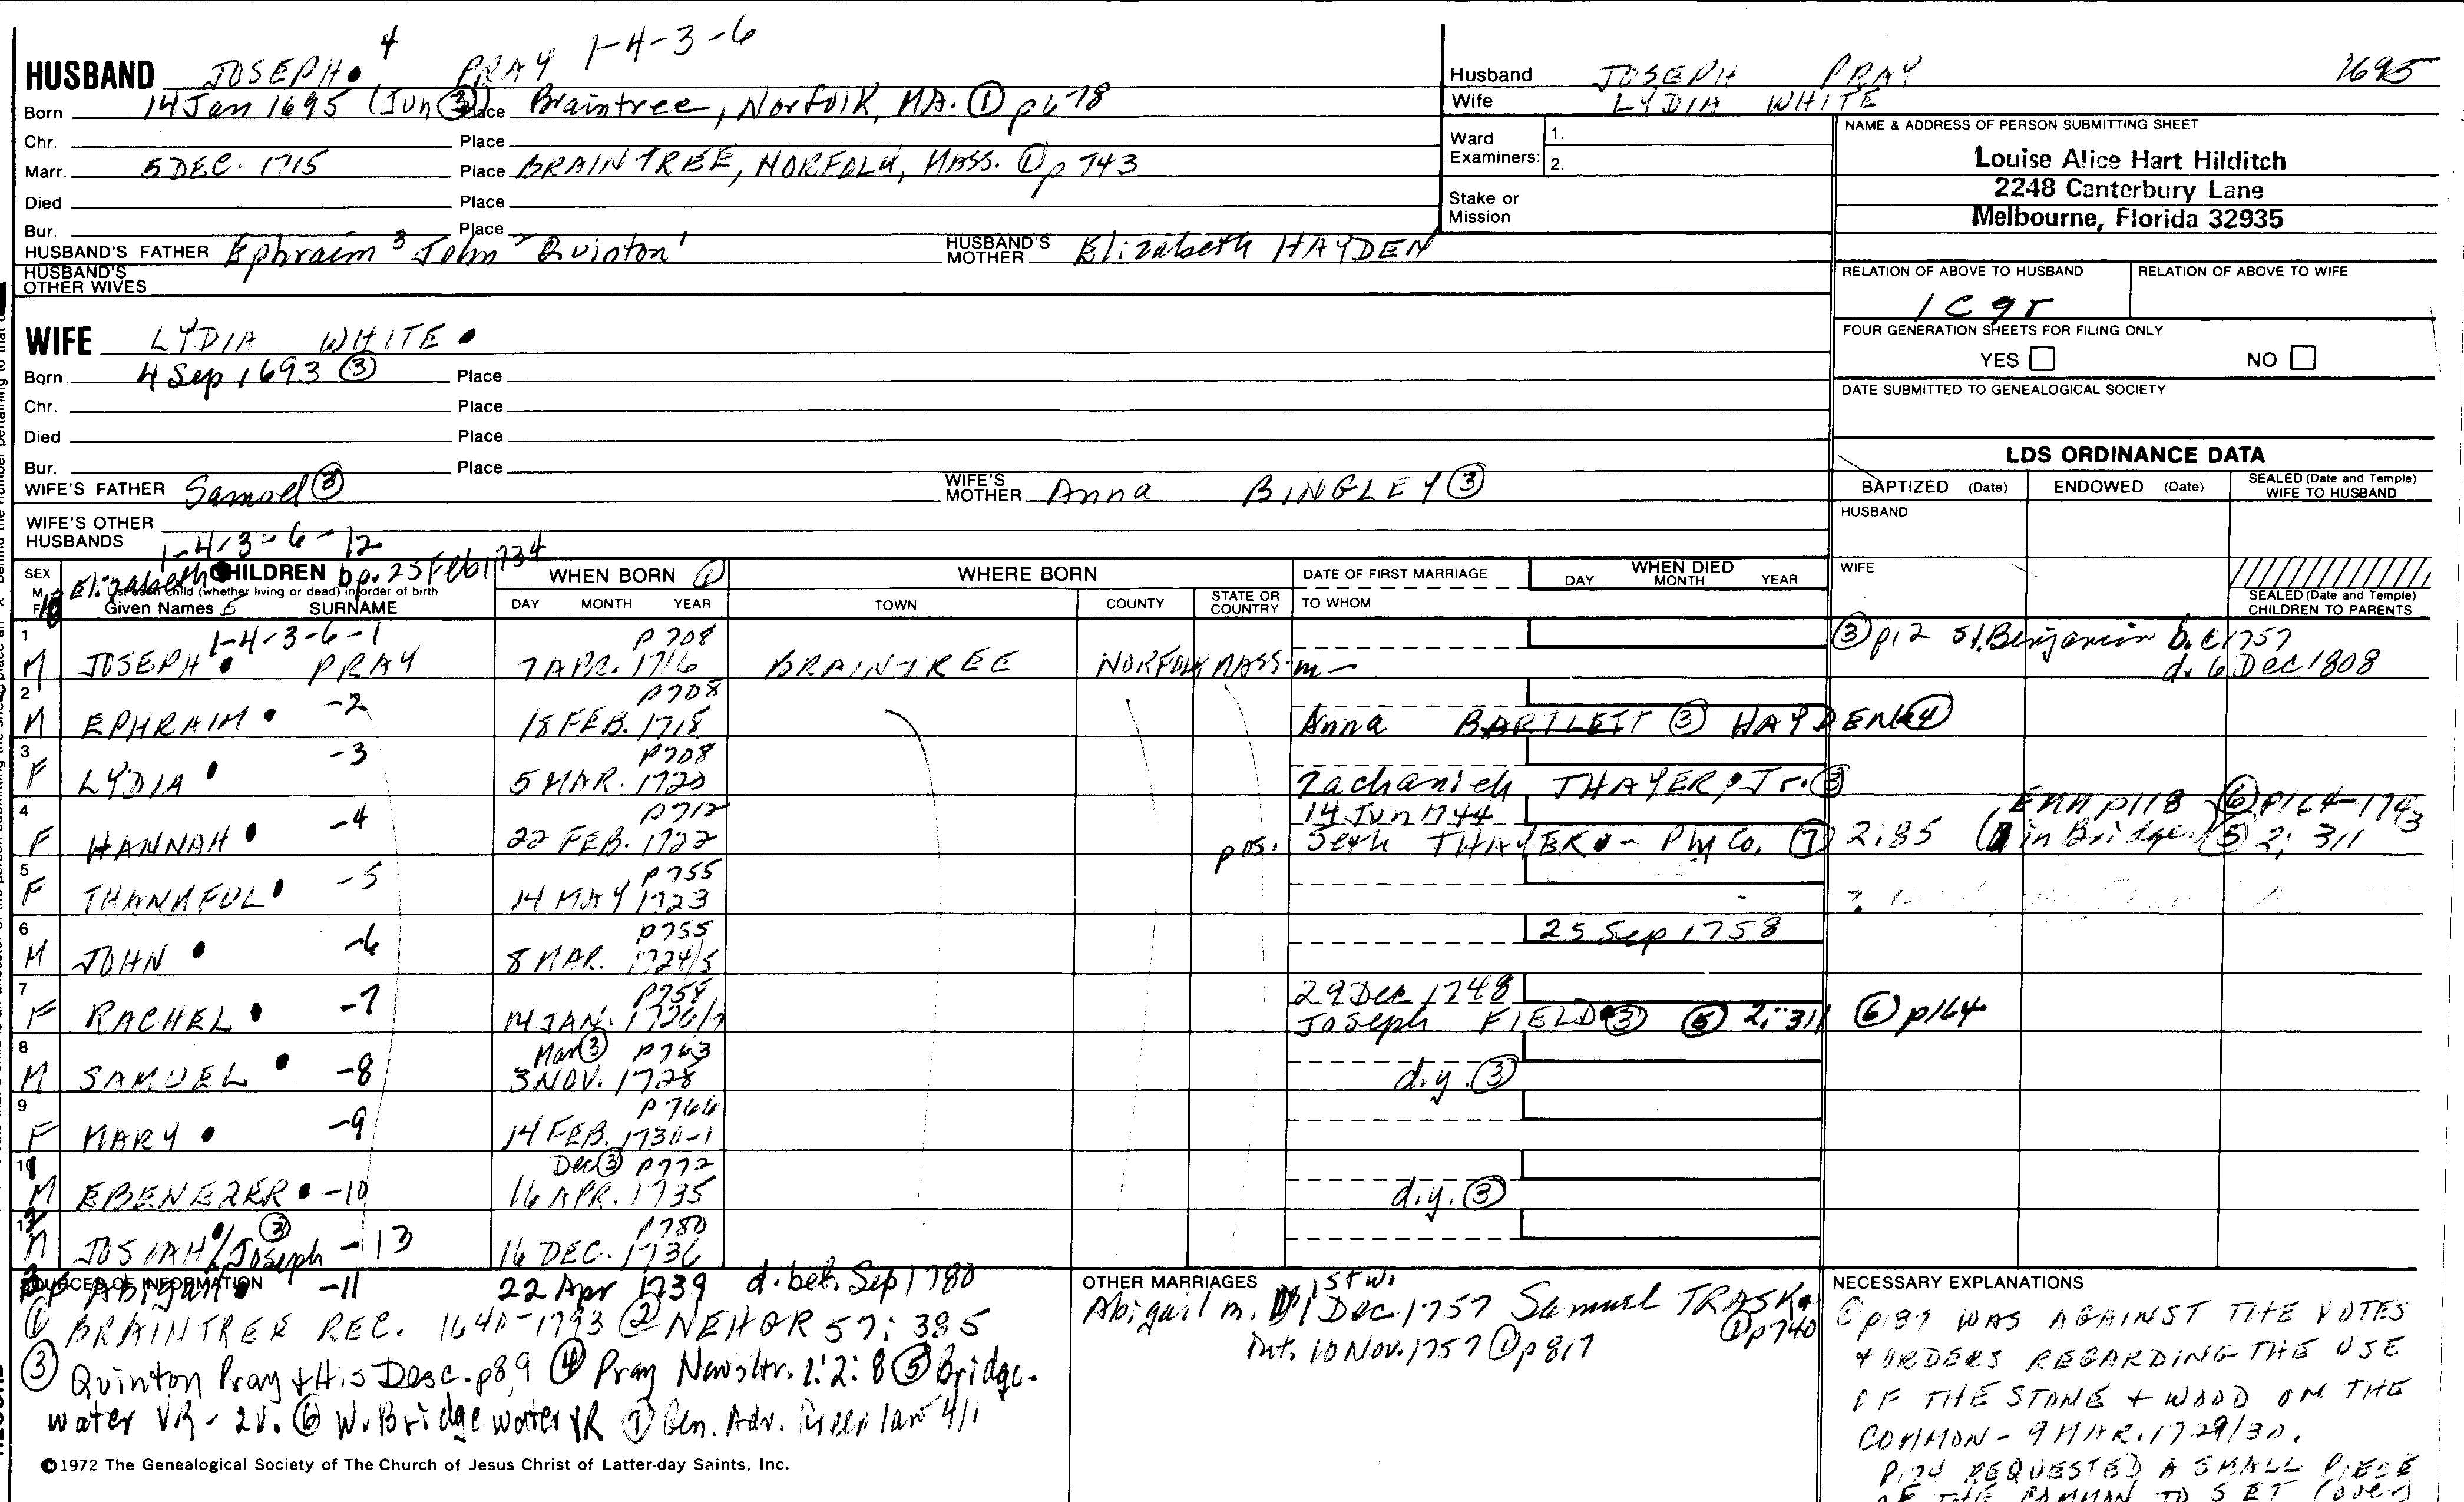 HUSBAND JOSEPH 4 PRAY 1-4-3-6
Born 14 Jan 1695 (Jun ③) Place Braintree, Norfolk, MA. ① p678
Chr. Place
Marr. 5 DEC. 1715 Place BRAINTREE, NORFOLK, MASS. ① p743
Died Place
Bur. Place
HUSBAND'S FATHER Ephraim 3 John 2 Quinton 1 HUSBAND'S MOTHER Elizabeth HAYDEN
HUSBAND'S OTHER WIVES
Husband JOSEPH PRAY 1695
Wife LYDIA WHITE
Ward Examiners: 1.
2.
Stake or Mission
NAME & ADDRESS OF PERSON SUBMITTING SHEET
Louise Alice Hart Hilditch
2248 Canterbury Lane
Melbourne, Florida 32935
RELATION OF ABOVE TO HUSBAND RELATION OF ABOVE TO WIFE
1C9r
FOUR GENERATION SHEETS FOR FILING ONLY
YES NO
DATE SUBMITTED TO GENEALOGICAL SOCIETY
WIFE LYDIA WHITE
Born 4 Sep 1693 ③ Place
Chr. Place
Died Place
Bur. Place
WIFE'S FATHER Samuel ③ WIFE'S MOTHER Anna BINGLEY ③
WIFE'S OTHER HUSBANDS
LDS ORDINANCE DATA
BAPTIZED (Date) ENDOWED (Date) SEALED (Date and Temple) WIFE TO HUSBAND
HUSBAND
WIFE
SEALED (Date and Temple) CHILDREN TO PARENTS
1-4-3-6-12
Elizabeth bp. 25 Feb 1734
SEX M F CHILDREN List each child (whether living or dead) in order of birth Given Names SURNAME
WHEN BORN ① DAY MONTH YEAR
WHERE BORN TOWN COUNTY STATE OR COUNTRY
DATE OF FIRST MARRIAGE TO WHOM
WHEN DIED DAY MONTH YEAR
1 1-4-3-6-1 p708
M JOSEPH PRAY 7 APR. 1716 BRAINTREE NORFOLK MASS. m- ③ p12 Benjamin b. c1757
d. 6 Dec 1808
2 -2 p708
M EPHRAIM 18 FEB. 1718 Anna BARTLETT ③ HAYDEN ④
3 -3 p708
F LYDIA 5 MAR. 1720 Zachariah THAYER, Jr. ③
4 -4 p712 14 Jun 1744 p118 ⑥ p164-173
F HANNAH 22 FEB. 1722 pos. Seth THAYER - Ply Co. ⑦ 2:85 (in Bridge.) ⑤ 2; 311
5 -5 p755
F THANKFUL 14 MAY 1723
6 -6 p755 25 Sep 1758
M JOHN 8 MAR. 1724/5
7 -7 p758 29 Dec 1748
F RACHEL 14 JAN. 1726/7 Joseph FIELD ③ ⑤ 2:311 ⑥ p164
8 Mar ③ p763
M SAMUEL -8 3 NOV. 1728 d.y. ③
9 -9 p766
F MARY 14 FEB. 1730-1
10 Dec ③ p772
M EBENEZER -10 16 APR. 1735 d.y. ③
③ p780
M JOSIAH/Joseph -13 16 DEC. 1736
SOURCES OF INFORMATION
Abigail -11 22 Apr 1739 d. bef. Sep 1780
① BRAINTREE REC. 1640-1793 ② NEHGR 57: 385
③ Quinton Pray & His Desc. p8,9 ④ Pray Newsltr. 1:2:8 ⑤ Bridge-
water VR - 2v. ⑥ W. Bridgewater VR ⑦ Gen. Adv. Greenlaw 4/1
©1972 The Genealogical Society of The Church of Jesus Christ of Latter-day Saints, Inc.
OTHER MARRIAGES 1st w.
Abigail m. 1 Dec 1757 Samuel TRASK
Int. 10 Nov. 1757 ① p817 ① p740
NECESSARY EXPLANATIONS
① p137 WAS AGAINST THE VOTES
& ORDERS REGARDING THE USE
OF THE STONE & WOOD ON THE
COMMON - 9 MAR. 1729/30.
REQUESTED A SMALL PIECE
OF THE COMMON TO SET (over)